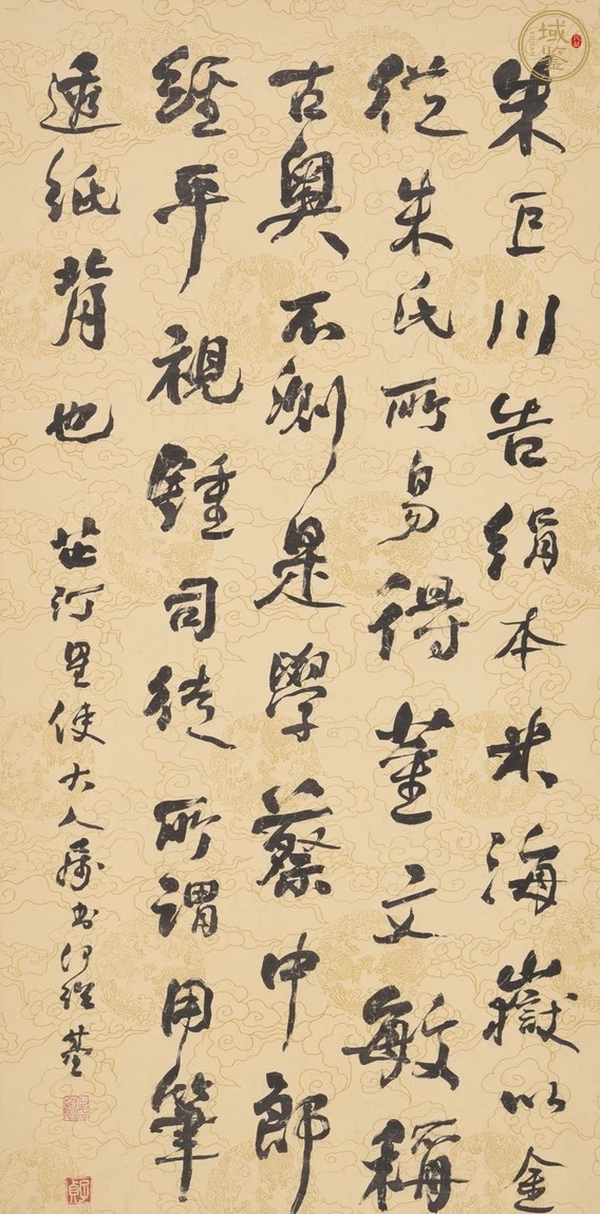 朱巨川告绢本米海嶽以金
從朱氏所易得董文敏稱
古奥不測是學蔡中郎
經平視鍾司徒所謂用筆
透紙背也
芷汀星使大人屬書何紹基
域鉴